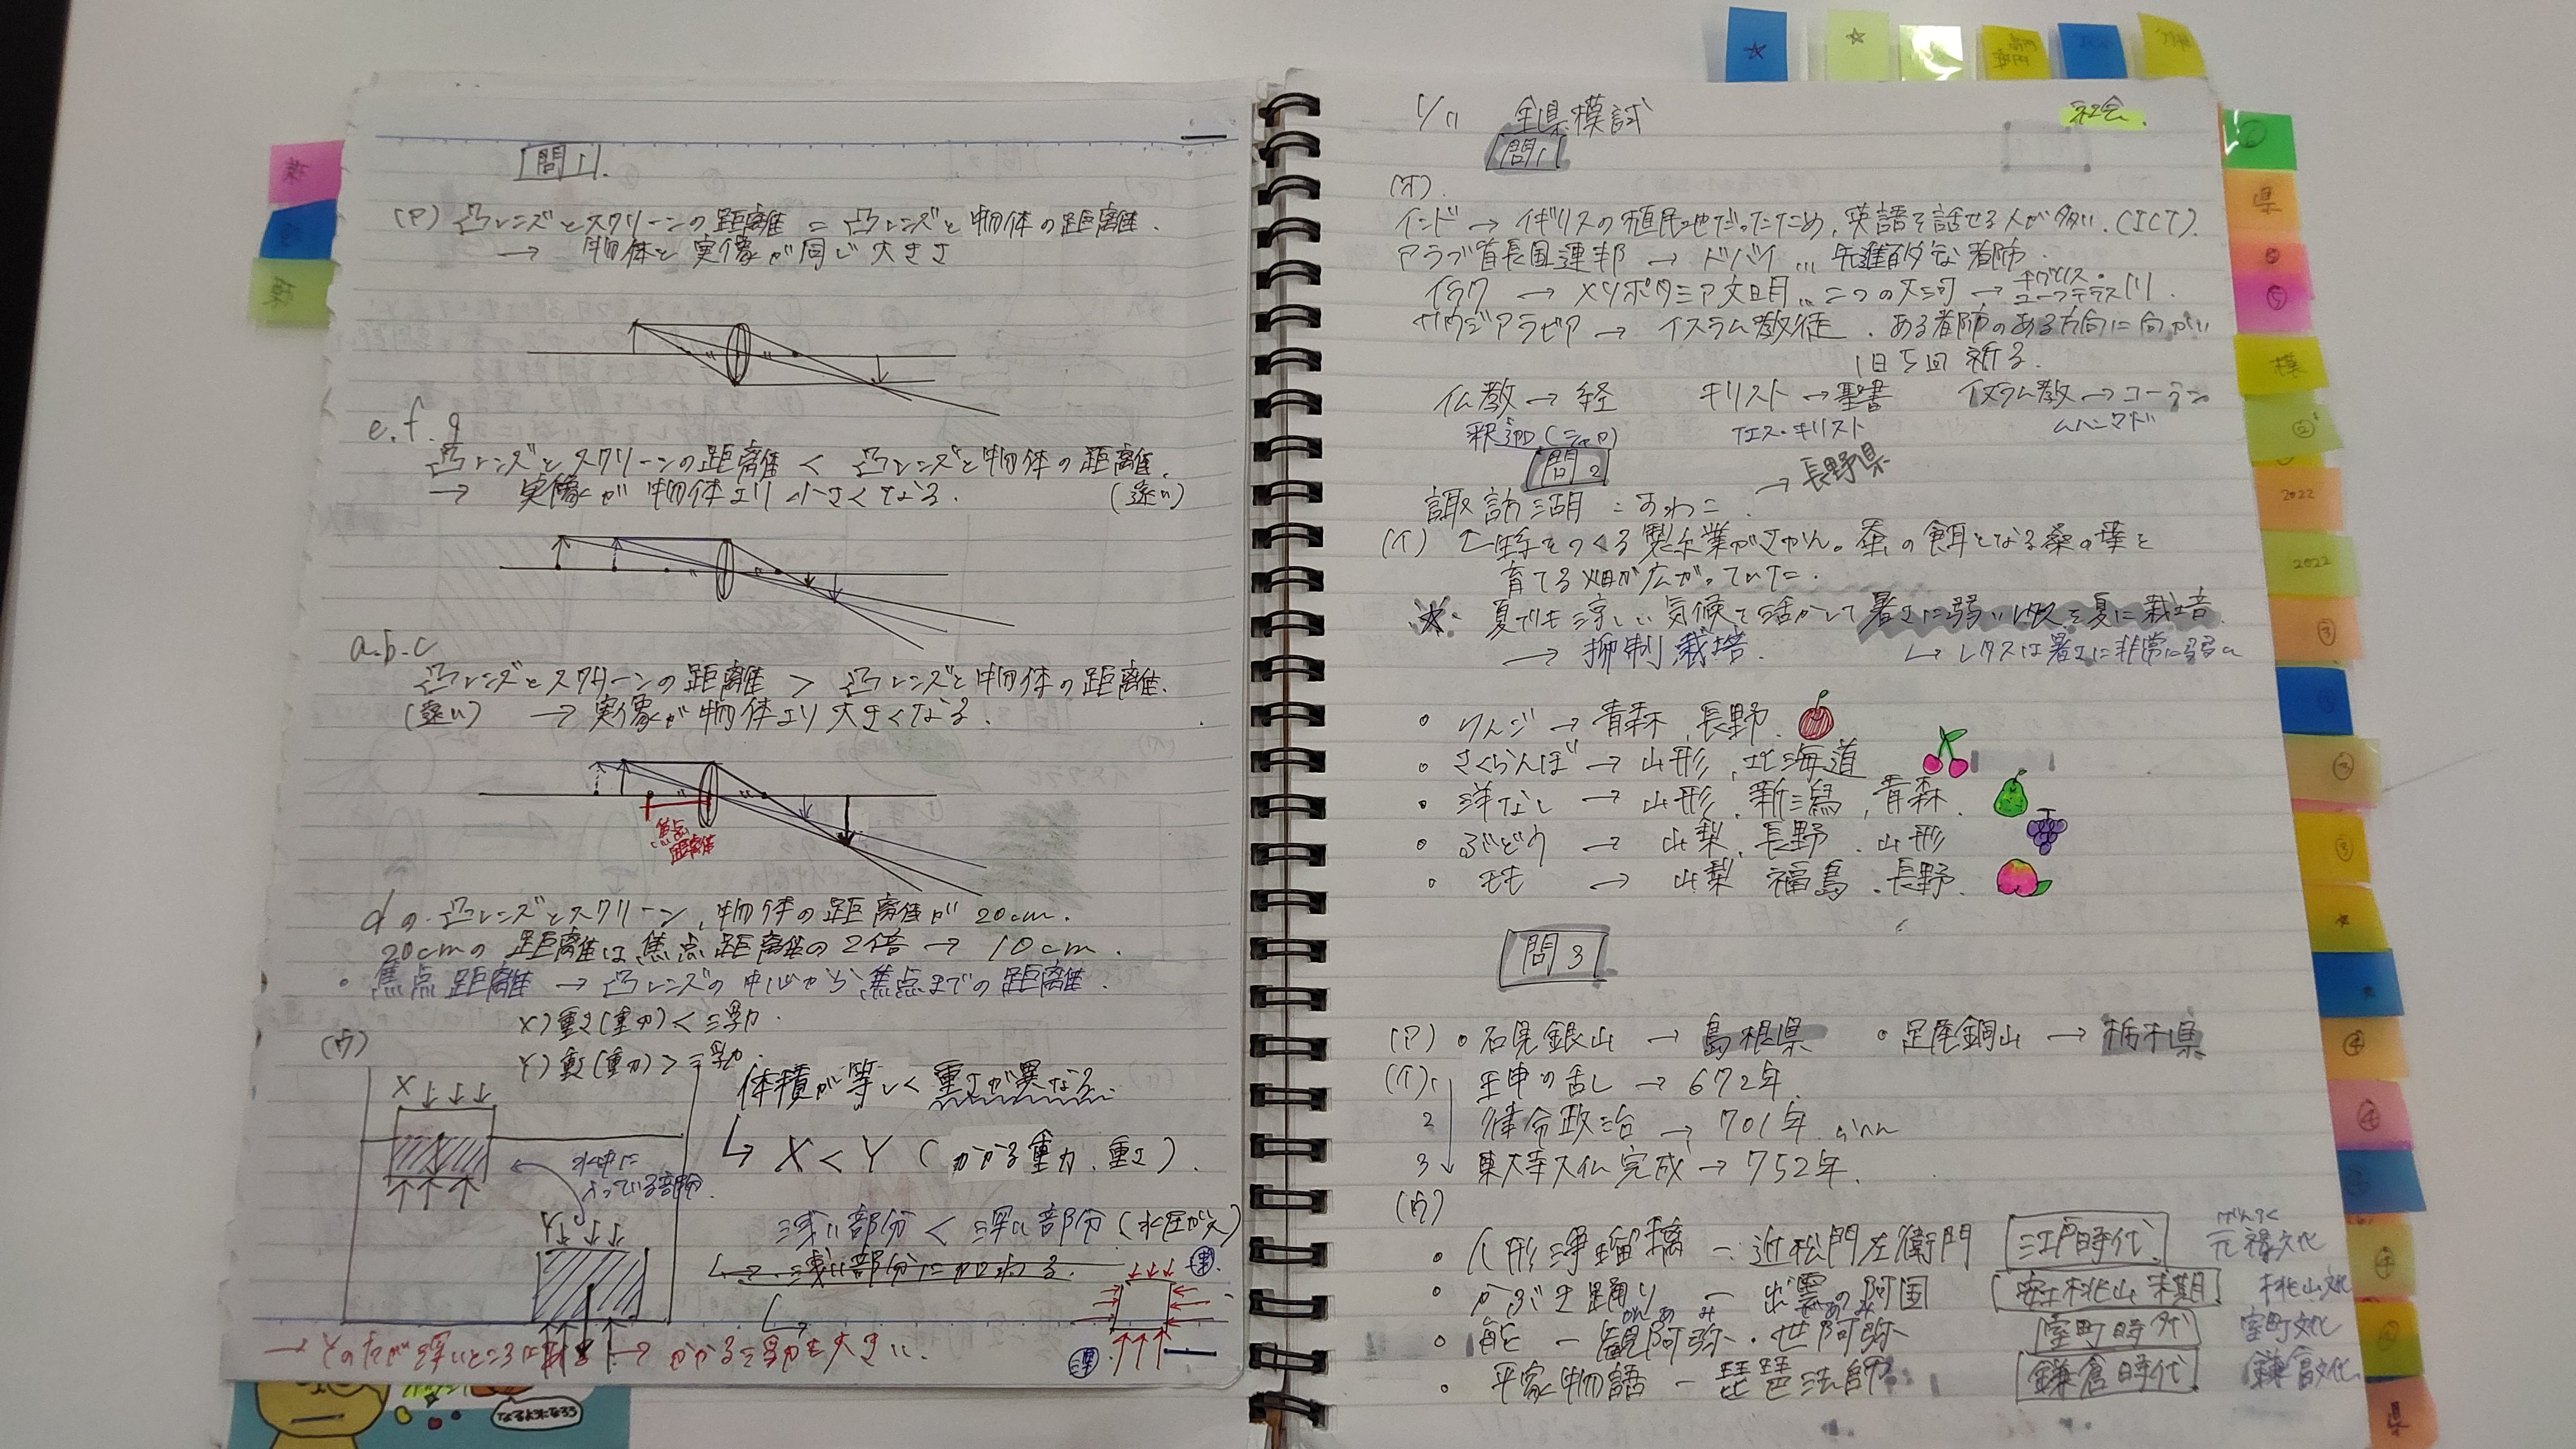 問1.
(ア) 凸レンズとスクリーンの距離 = 凸レンズと物体の距離.
→ 物体と実像が同じ大きさ
e.f.g
凸レンズとスクリーンの距離 < 凸レンズと物体の距離.
→ 実像が物体より小さくなる. (遠い)
a.b.c
凸レンズとスクリーンの距離 > 凸レンズと物体の距離.
(遠い) → 実像が物体より大きくなる.
焦点
距離
dの.凸レンズとスクリーン,物体の距離が 20cm.
20cmの距離は焦点距離の2倍 → 10cm.
・焦点距離 → 凸レンズの中心から焦点までの距離.
X)重さ(重力) < 浮力.
(ウ)
Y)重(重力) > 浮力.
体積が等しく重さが異なる.
X
↳ X < Y (かかる重力、重さ).
水中に
入っている部分.
浅い部分 < 深い部分 (水圧が大)
↳ 浅い部分に加わる.
浅.
深.
→ Yの方が深いところにある → かかる浮力も大きい.
なるようになろう
1/11 全県模試
社会.
問1
(オ).
インド → イギリスの植民地だったため、英語を話せる人が多い.(ICT).
アラブ首長国連邦 → ドバイ … 先進的な都市.
イラク → メソポタミア文明…二つの大河 → チグリス・ユーフラテス川.
サウジアラビア → イスラム教徒. ある都市のある方向に向かい
1日5回祈る.
仏教 → 経 キリスト → 聖書 イスラム教 → コーラン
釈迦(シャカ) イエス・キリスト ムハンマド
問2
→ 長野県
諏訪湖:すわこ
(イ) 生糸をつくる製糸業がさかん。蚕の餌となる桑の葉を
育てる畑が広がっていた.
☆. 夏でも涼しい気候を活かして暑さに弱いレタスを夏に栽培.
→ 抑制栽培. ↳ レタスは暑さに非常に弱い
・りんご → 青森、長野.
・さくらんぼ → 山形、北海道
・洋なし → 山形、新潟、青森.
・ぶどう → 山梨、長野、山形
・モモ → 山梨 福島.長野.
問3
(ア)・石見銀山 → 島根県 ・足尾銅山 → 栃木県
(イ)1 壬申の乱 → 672年.
2 律令政治 → 701年.
3 東大寺大仏完成 → 752年.
(ウ)
・人形浄瑠璃 - 近松門左衛門 江戸時代. げんろく 元禄文化
・かぶき踊り - 出雲の阿国 安土桃山末期 桃山文化
かんあみ ぜあみ
・能 - 観阿弥・世阿弥 室町時代 室町文化
・平家物語 - 琵琶法師 鎌倉時代 鎌倉文化
県
模
2022
2022
③
③
③
④
④
県